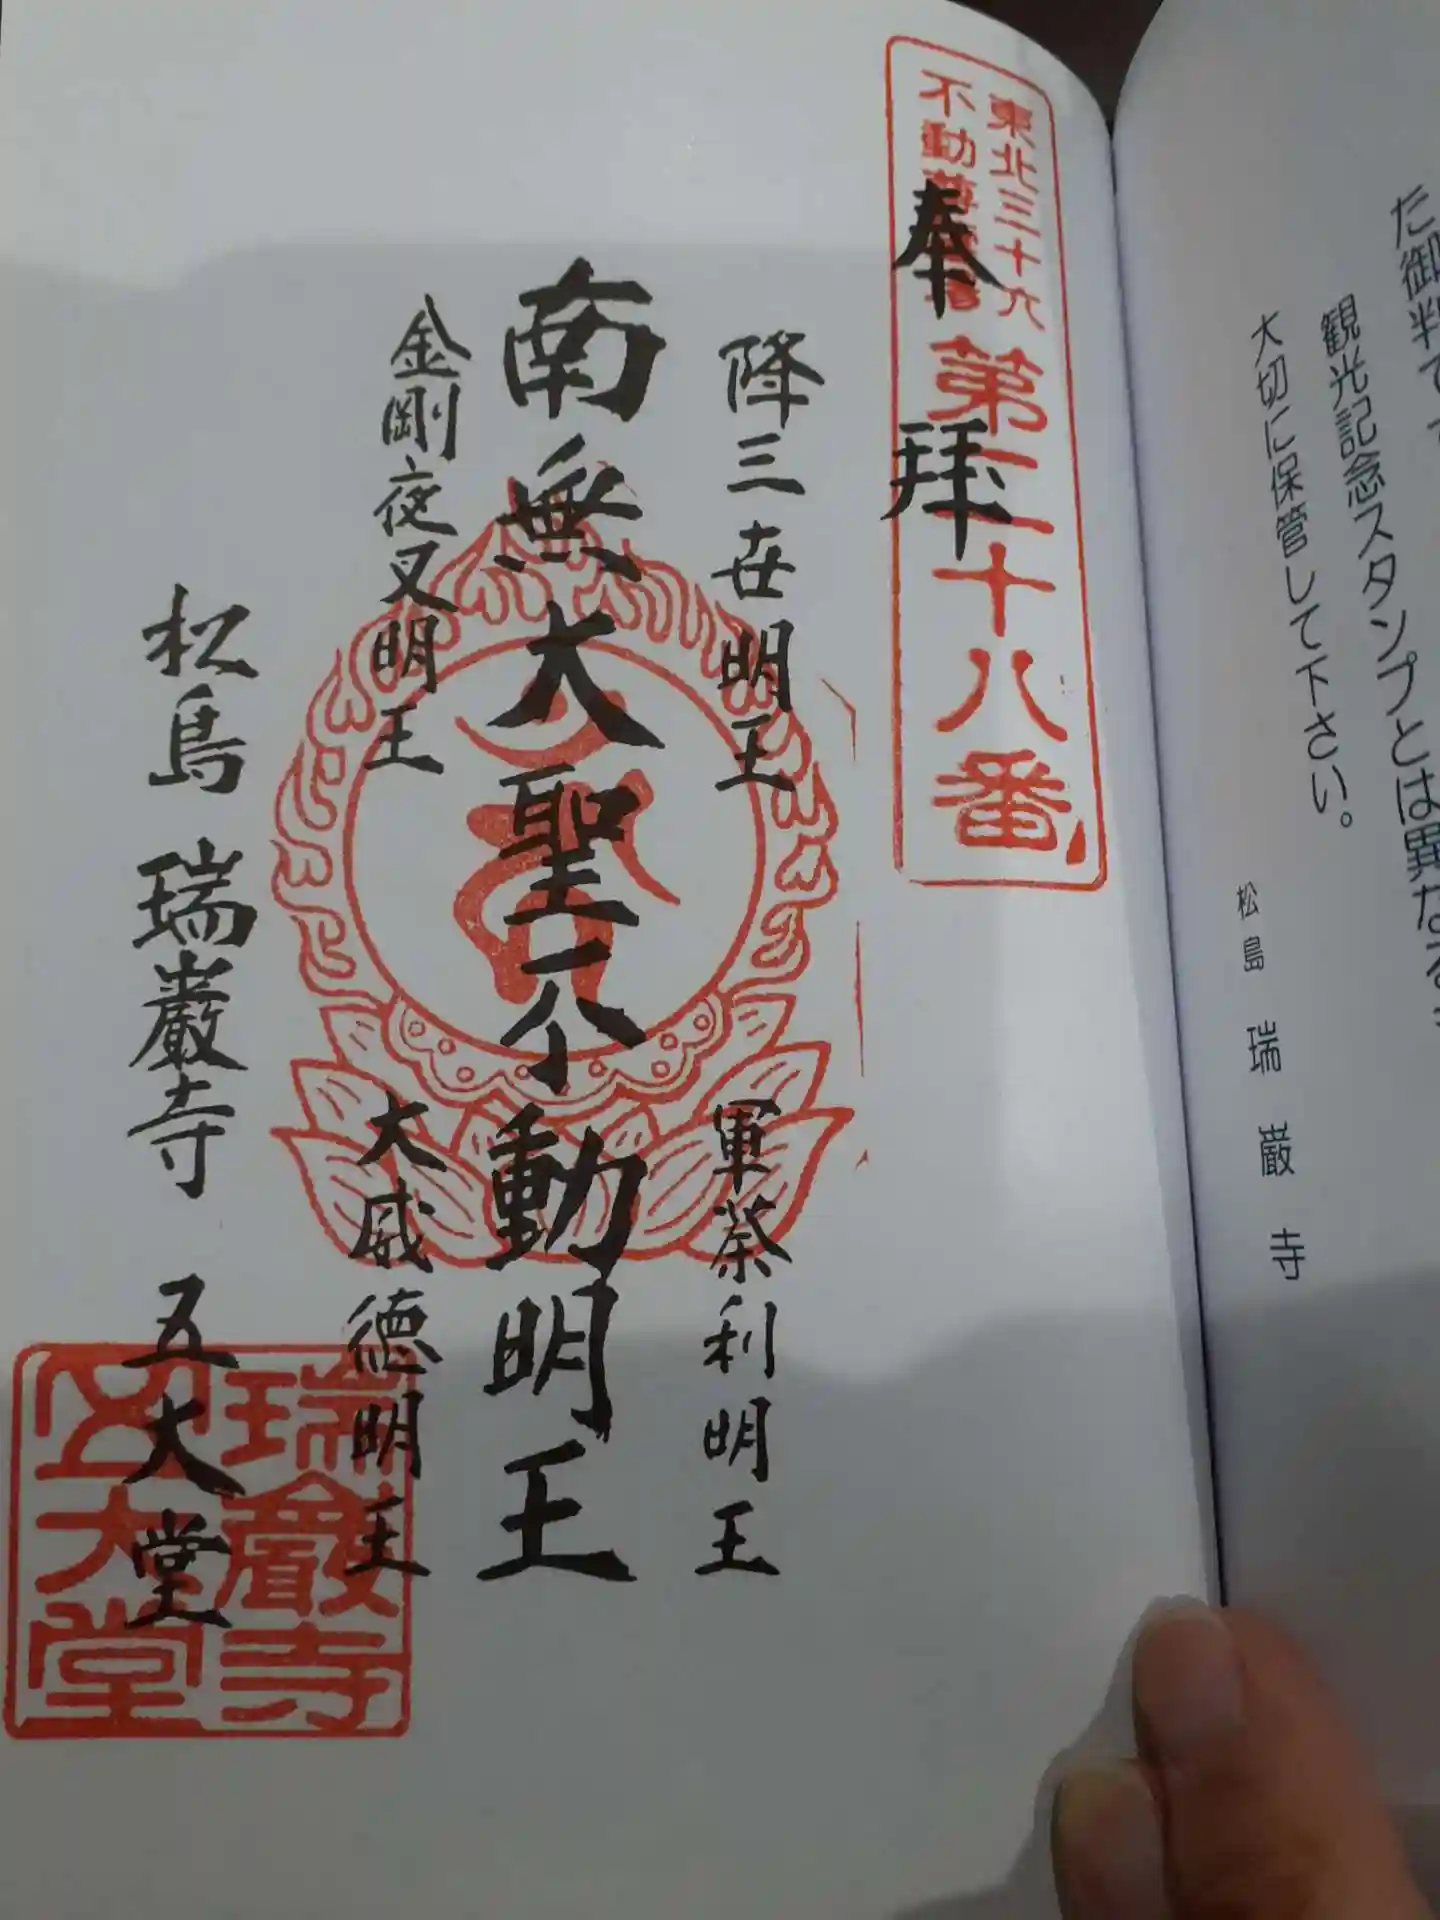 た御判で
観光記念スタンプとは異なる
大切に保管して下さい。
松島 瑞巌寺
東北三十六
不動尊霊場
第二十八番
奉拝
降三世明王
軍荼利明王
南無大聖不動明王
金剛夜叉明王
大威徳明王
松島 瑞巌寺 五大堂
瑞巌寺
五大堂